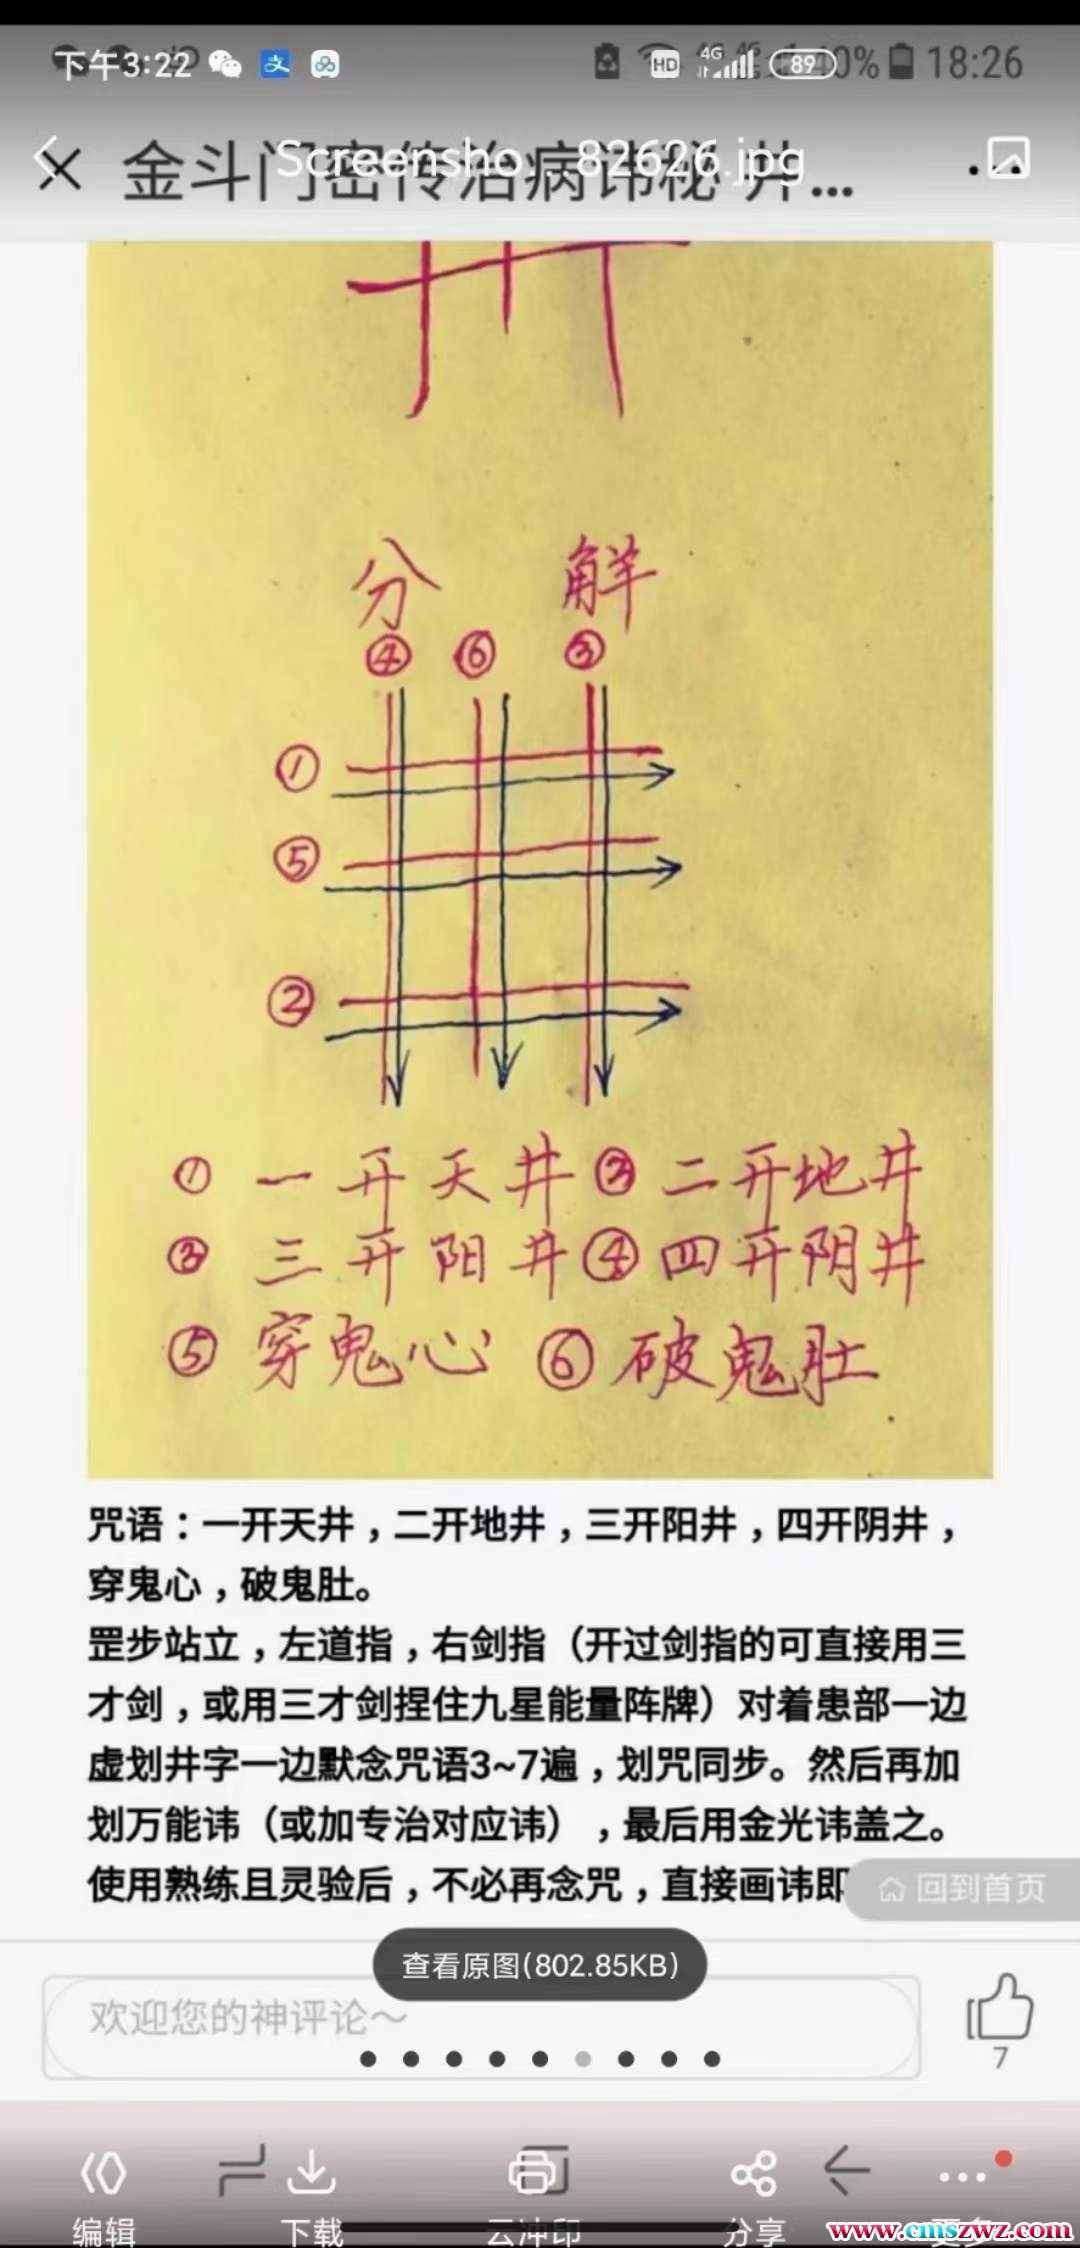 下午3:22
HD 4G 89 40% 18:26
Screensho...82626.jpg
金斗门密传治病讳秘 井...
分 解
④ ⑥ ③
①
⑤
②
① 一开天井 ② 二开地井
③ 三开阳井 ④ 四开阴井
⑤ 穿鬼心 ⑥ 破鬼肚
咒语：一开天井，二开地井，三开阳井，四开阴井，
穿鬼心，破鬼肚。
罡步站立，左道指，右剑指（开过剑指的可直接用三
才剑，或用三才剑捏住九星能量阵牌）对着患部一边
虚划井字一边默念咒语3~7遍，划咒同步。然后再加
划万能讳（或加专治对应讳），最后用金光讳盖之。
使用熟练且灵验后，不必再念咒，直接画讳即
回到首页
查看原图(802.85KB)
欢迎您的神评论～
7
编辑 下载 云冲印 分享 更多
www.cmszwz.com